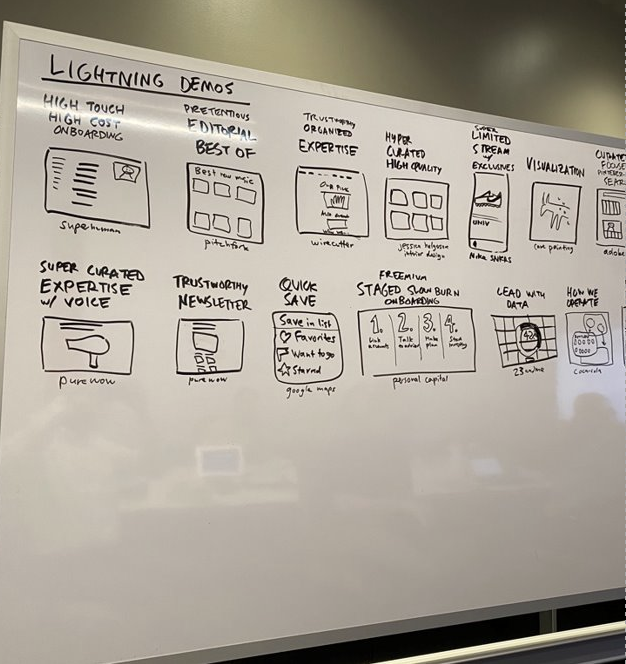 LIGHTNING DEMOS
HIGH TOUCH
HIGH COST
ONBOARDING
superhuman
PRETENTIOUS
EDITORIAL
BEST OF
Best new music
pitchfork
TRUSTWORTHY
ORGANIZED
EXPERTISE
Our Pick
wirecutter
HYPER
CURATED
HIGH QUALITY
jessica helgerson
interior design
SUPER
LIMITED
STREAM
w/
EXCLUSIVES
UNIV
Nike SNKRS
VISUALIZATION
cave painting
SEAR
adobe
SUPER CURATED
EXPERTISE
w/ VOICE
purewow
TRUSTWORTHY
NEWSLETTER
purewow
QUICK
SAVE
Save in list
Favorites
Want to go
Starred
google maps
FREEMIUM
STAGED SLOW BURN
ONBOARDING
1. 2. 3. 4.
Link accounts
Talk to advisor
Make plan
Start investing
personal capital
LEAD WITH
DATA
23andme
HOW WE
OPERATE